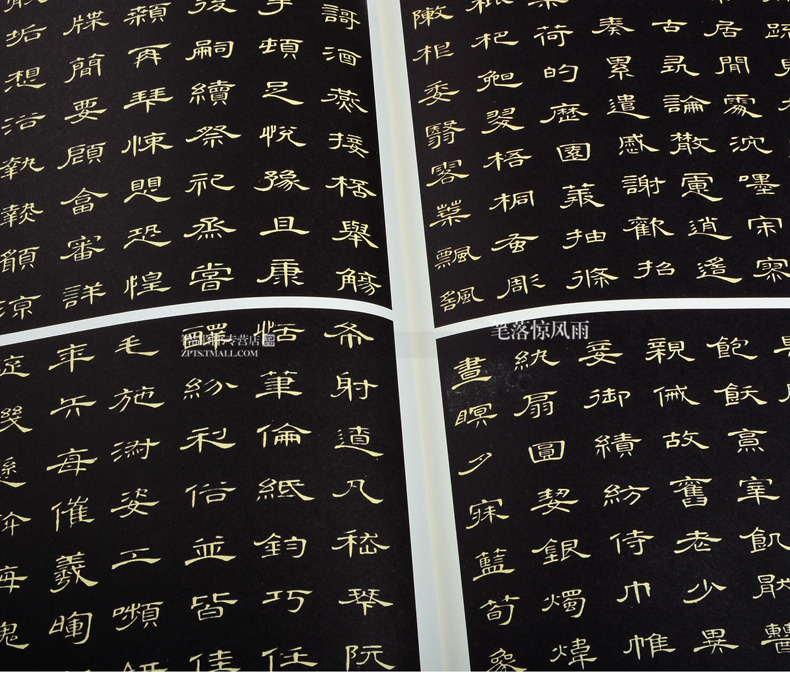 居閒處沉嘿寂寥
古尋論散慮逍遙
奏累遣慼謝歡招
荷的歷園莽抽條
枇杷晚翠梧桐蚤彫
陳根委翳落葉飄颻
酒燕接桮舉觴
手頓足悅豫且康
後嗣續祭祀烝嘗
顙再拜悚懼恐惶
牒簡要顧答審詳
垢想浴執熱願涼
飽飫烹宰飢厭糟
親戚故舊老少異
妾御績紡侍巾帷
紈扇圓潔銀燭煒
晝瞑夕寐藍筍象
布射遼丸嵇琴阮
恬筆倫紙鈞巧任
釋紛利俗並皆佳
毛施淑姿工嚬妍
年矢每催羲暉
璣懸斡晦魄
笔落惊风雨
ZPTS.TMALL.COM